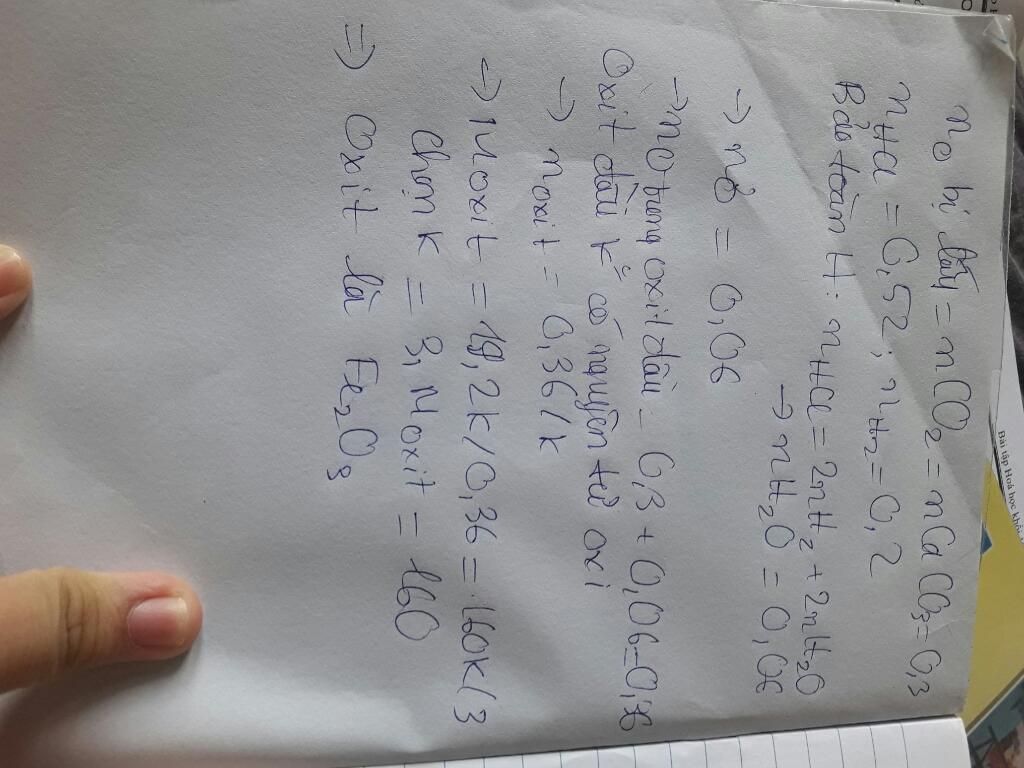 nO bị lấy = nCO2 = nCaCO3 = 0,3
nHCl = 0,52; nH2 = 0,2
Bảo toàn H: nHCl = 2nH2 + 2nH2O
→ nH2O = 0,06
→ nO = 0,06
→ nO trong oxit đầu = 0,3 + 0,06 = 0,36
Oxit đầu k có nguyên tử oxi
→ noxit = 0,36/k
→ Moxit = 19,2k/0,36 = 160k/3
Chọn k = 3, Moxit = 160
⇒ Oxit là Fe2O3
Bài tập Hoá học